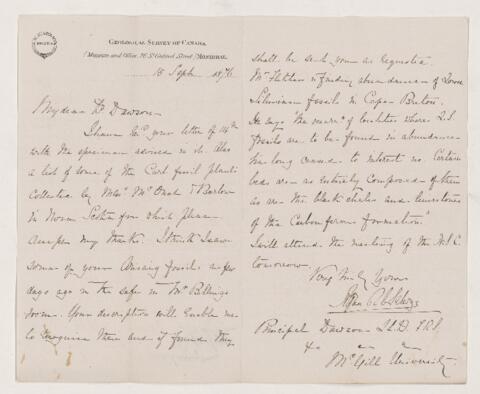 GEOLOGICAL SURVEY OF CANADA.
(Museum and Office, 76 St. Gabriel Street,) MONTREAL
15 Septr. 1876
My dear Dr Dawson
I have recd. your letter of 14th
with the specimen advised in it. Also
a list of some of the Carb fossil plants
collected by Messrs McOuat & Barlow
in Nova Scotia for which please
accept my thanks. I think I saw
some of your missing fossils a few
days ago in the safe in Mr Billings
room. Your description will enable me
to recognise them and if found they
shall be sent you as requested.
Mr Fletcher is finding abundance of Lower
Silurian fossils in Cape Breton.
He says "The number of localities where L.S.
fossils are to be found in abundance
has long ceased to interest us. Certain
beds are as entirely composed of them
as are the black shales and limestones
of the Carboniferous formation"
I will attend the meeting of the N.S.
tomorrow.
Very truly Yours
Principal Dawson LL.D. F.R.S.
&c &c &c
McGill University